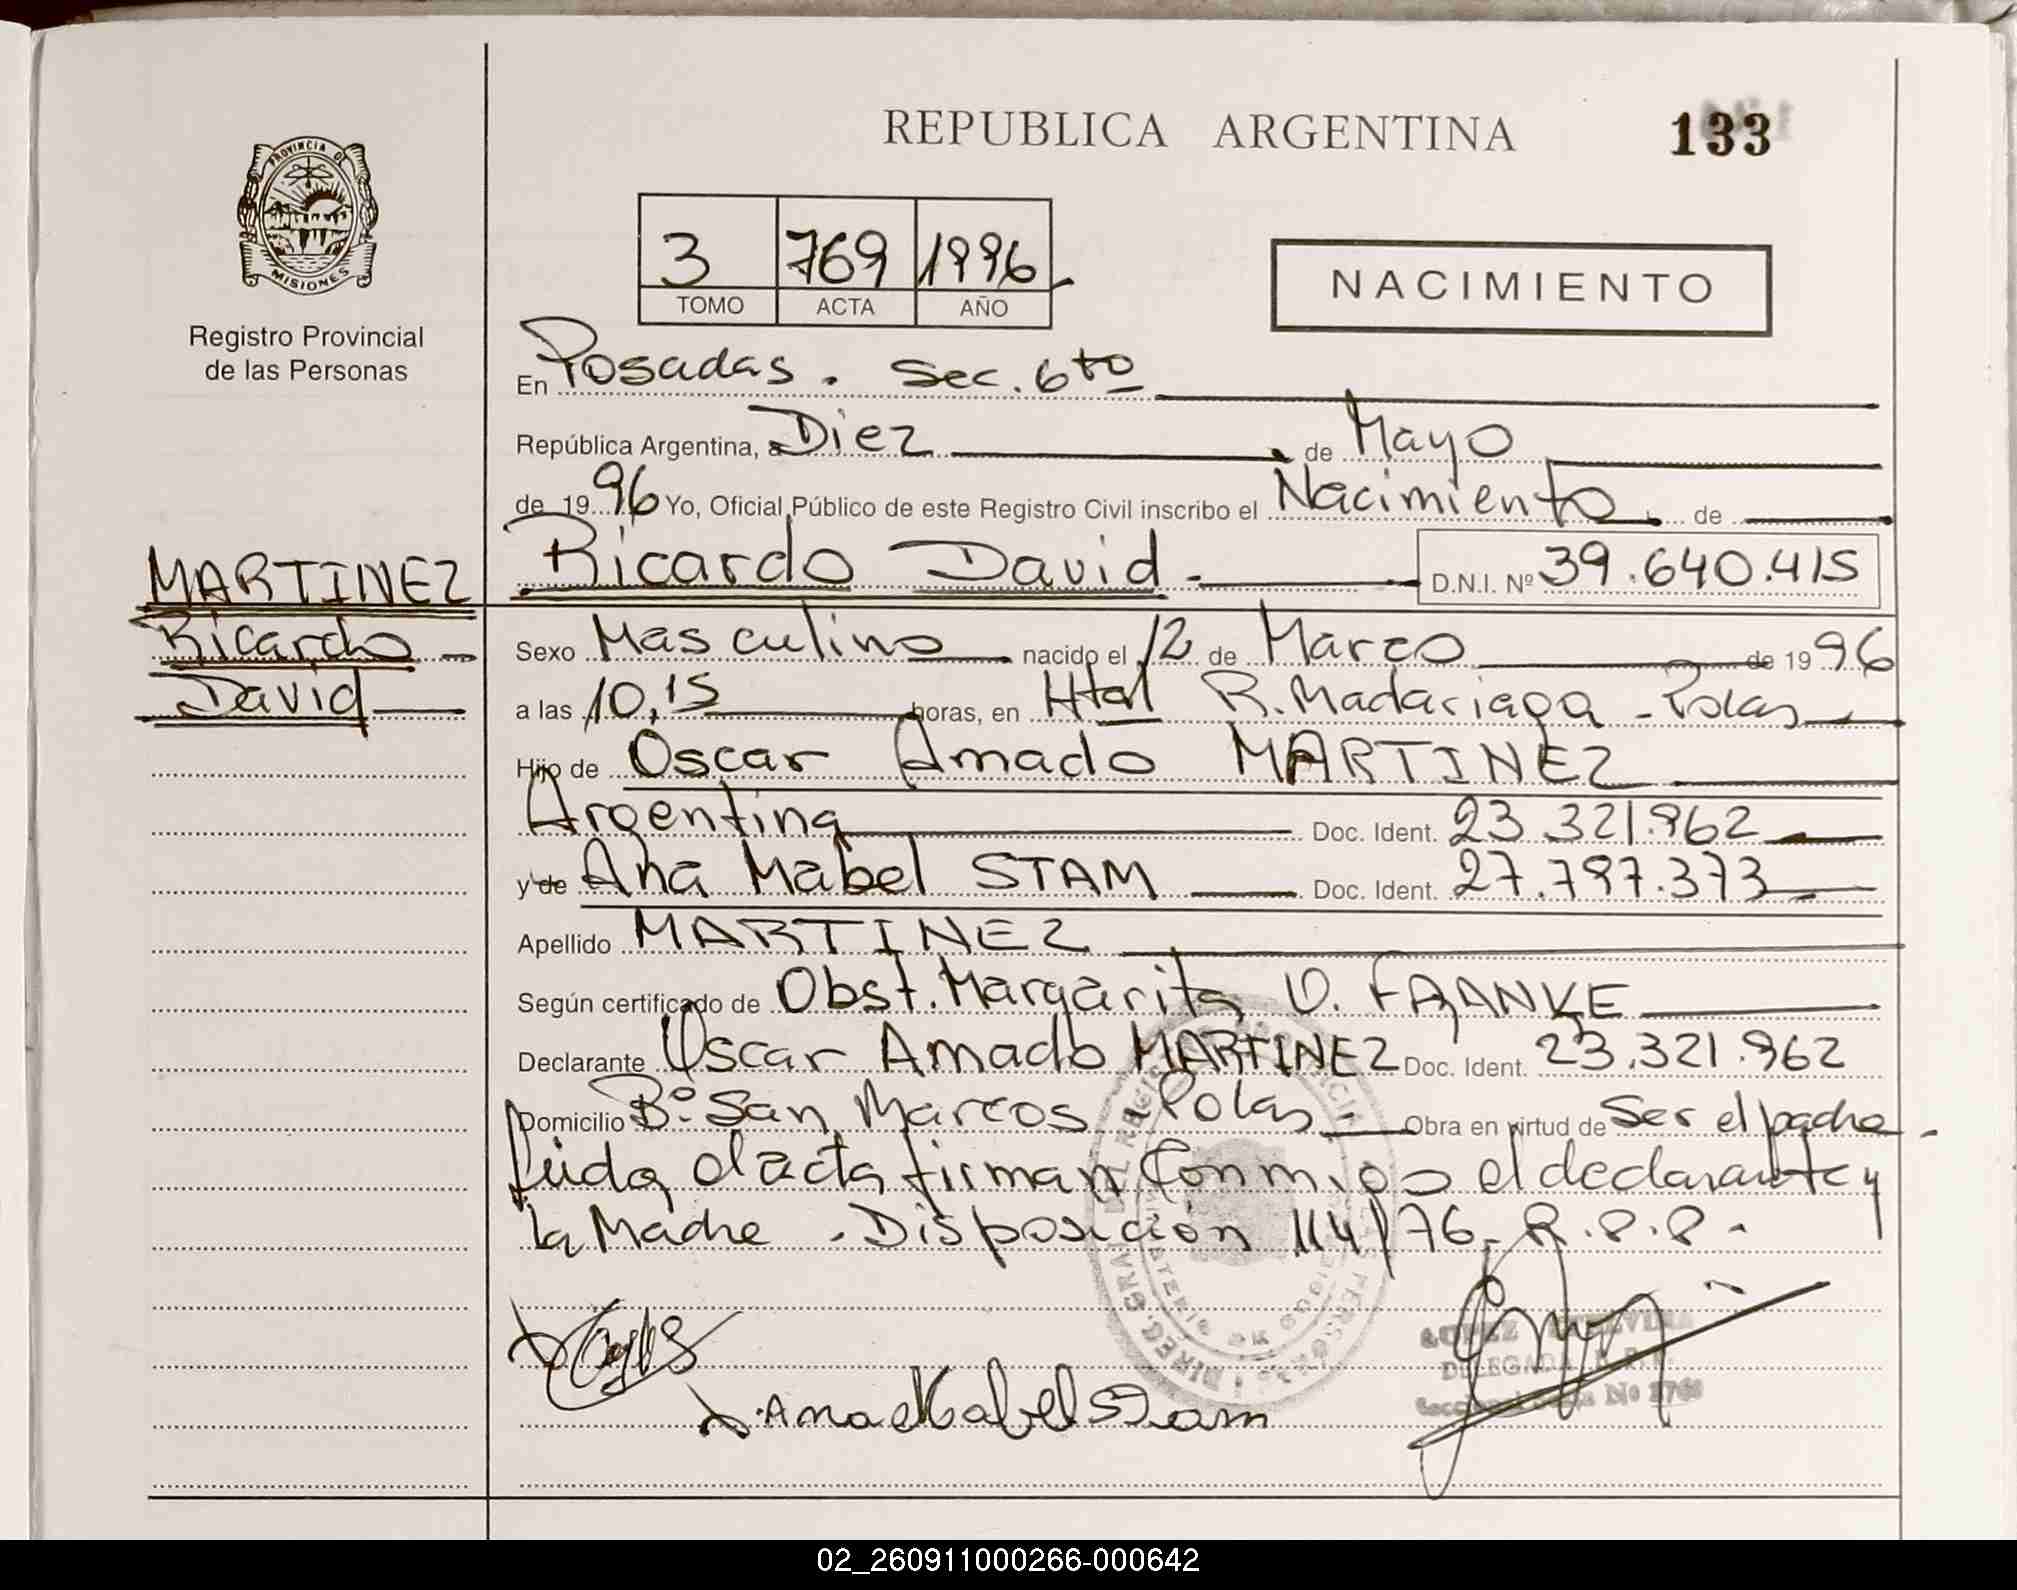 REPUBLICA ARGENTINA
133
PROVINCIA DE
MISIONES
Registro Provincial
de las Personas
3 769 1996
TOMO ACTA AÑO
NACIMIENTO
En Posadas. Sec. 6to
República Argentina, a Diez de Mayo
de 1996 Yo, Oficial Público de este Registro Civil inscribo el Nacimiento de
Ricardo David D.N.I. Nº 39.640.415
MARTINEZ
Ricardo
David
Sexo Masculino nacido el 12 de Marzo de 1996
a las 10,15 horas, en Htal R. Madariaga - Pdas
Hijo de Oscar Amado MARTINEZ
Argentina Doc. Ident. 23.321.962
y de Ana Mabel STAM Doc. Ident. 27.797.373
Apellido MARTINEZ
Según certificado de Obst. Margarita V. FRANKE
Declarante Oscar Amado MARTINEZ Doc. Ident. 23.321.962
Domicilio Bº San Marcos - Pdas - Obra en virtud de Ser el padre -
Leída el acta firman Conmigo el declarante y
la Madre. Disposición 114/76 - R.P.P.
Ana Mabel Stam
DELEGADA
02_260911000266-000642